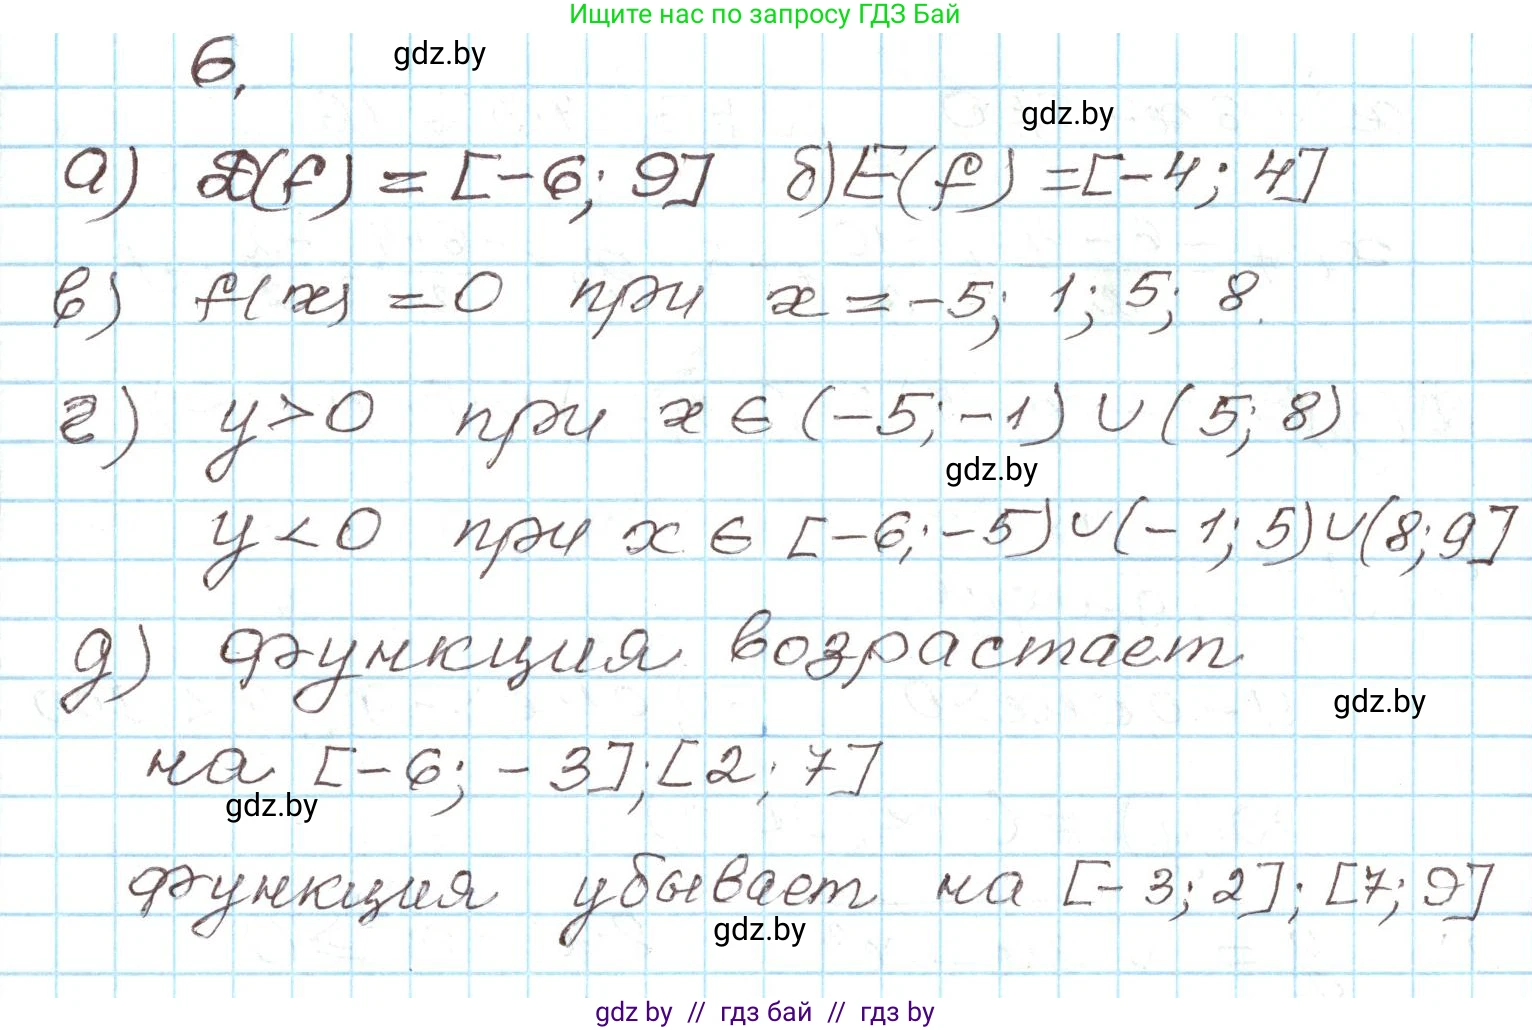 Ищите нас по запросу ГДЗ Бай
6, gdz.by
gdz.by
а) D(f) = [-6; 9] б) E(f) = [-4; 4]
в) f(x) = 0 при x = -5; 1; 5; 8.
г) y > 0 при x ∈ (-5; -1) ∪ (5; 8)
gdz.by
y < 0 при x ∈ [-6; -5) ∪ (-1; 5) ∪ (8; 9]
д) функция возрастает
gdz.by
на [-6; -3]; [2; 7]
gdz.by
функция убывает на [-3; 2]; [7; 9]
gdz.by
gdz by // гдз бай // гдз by